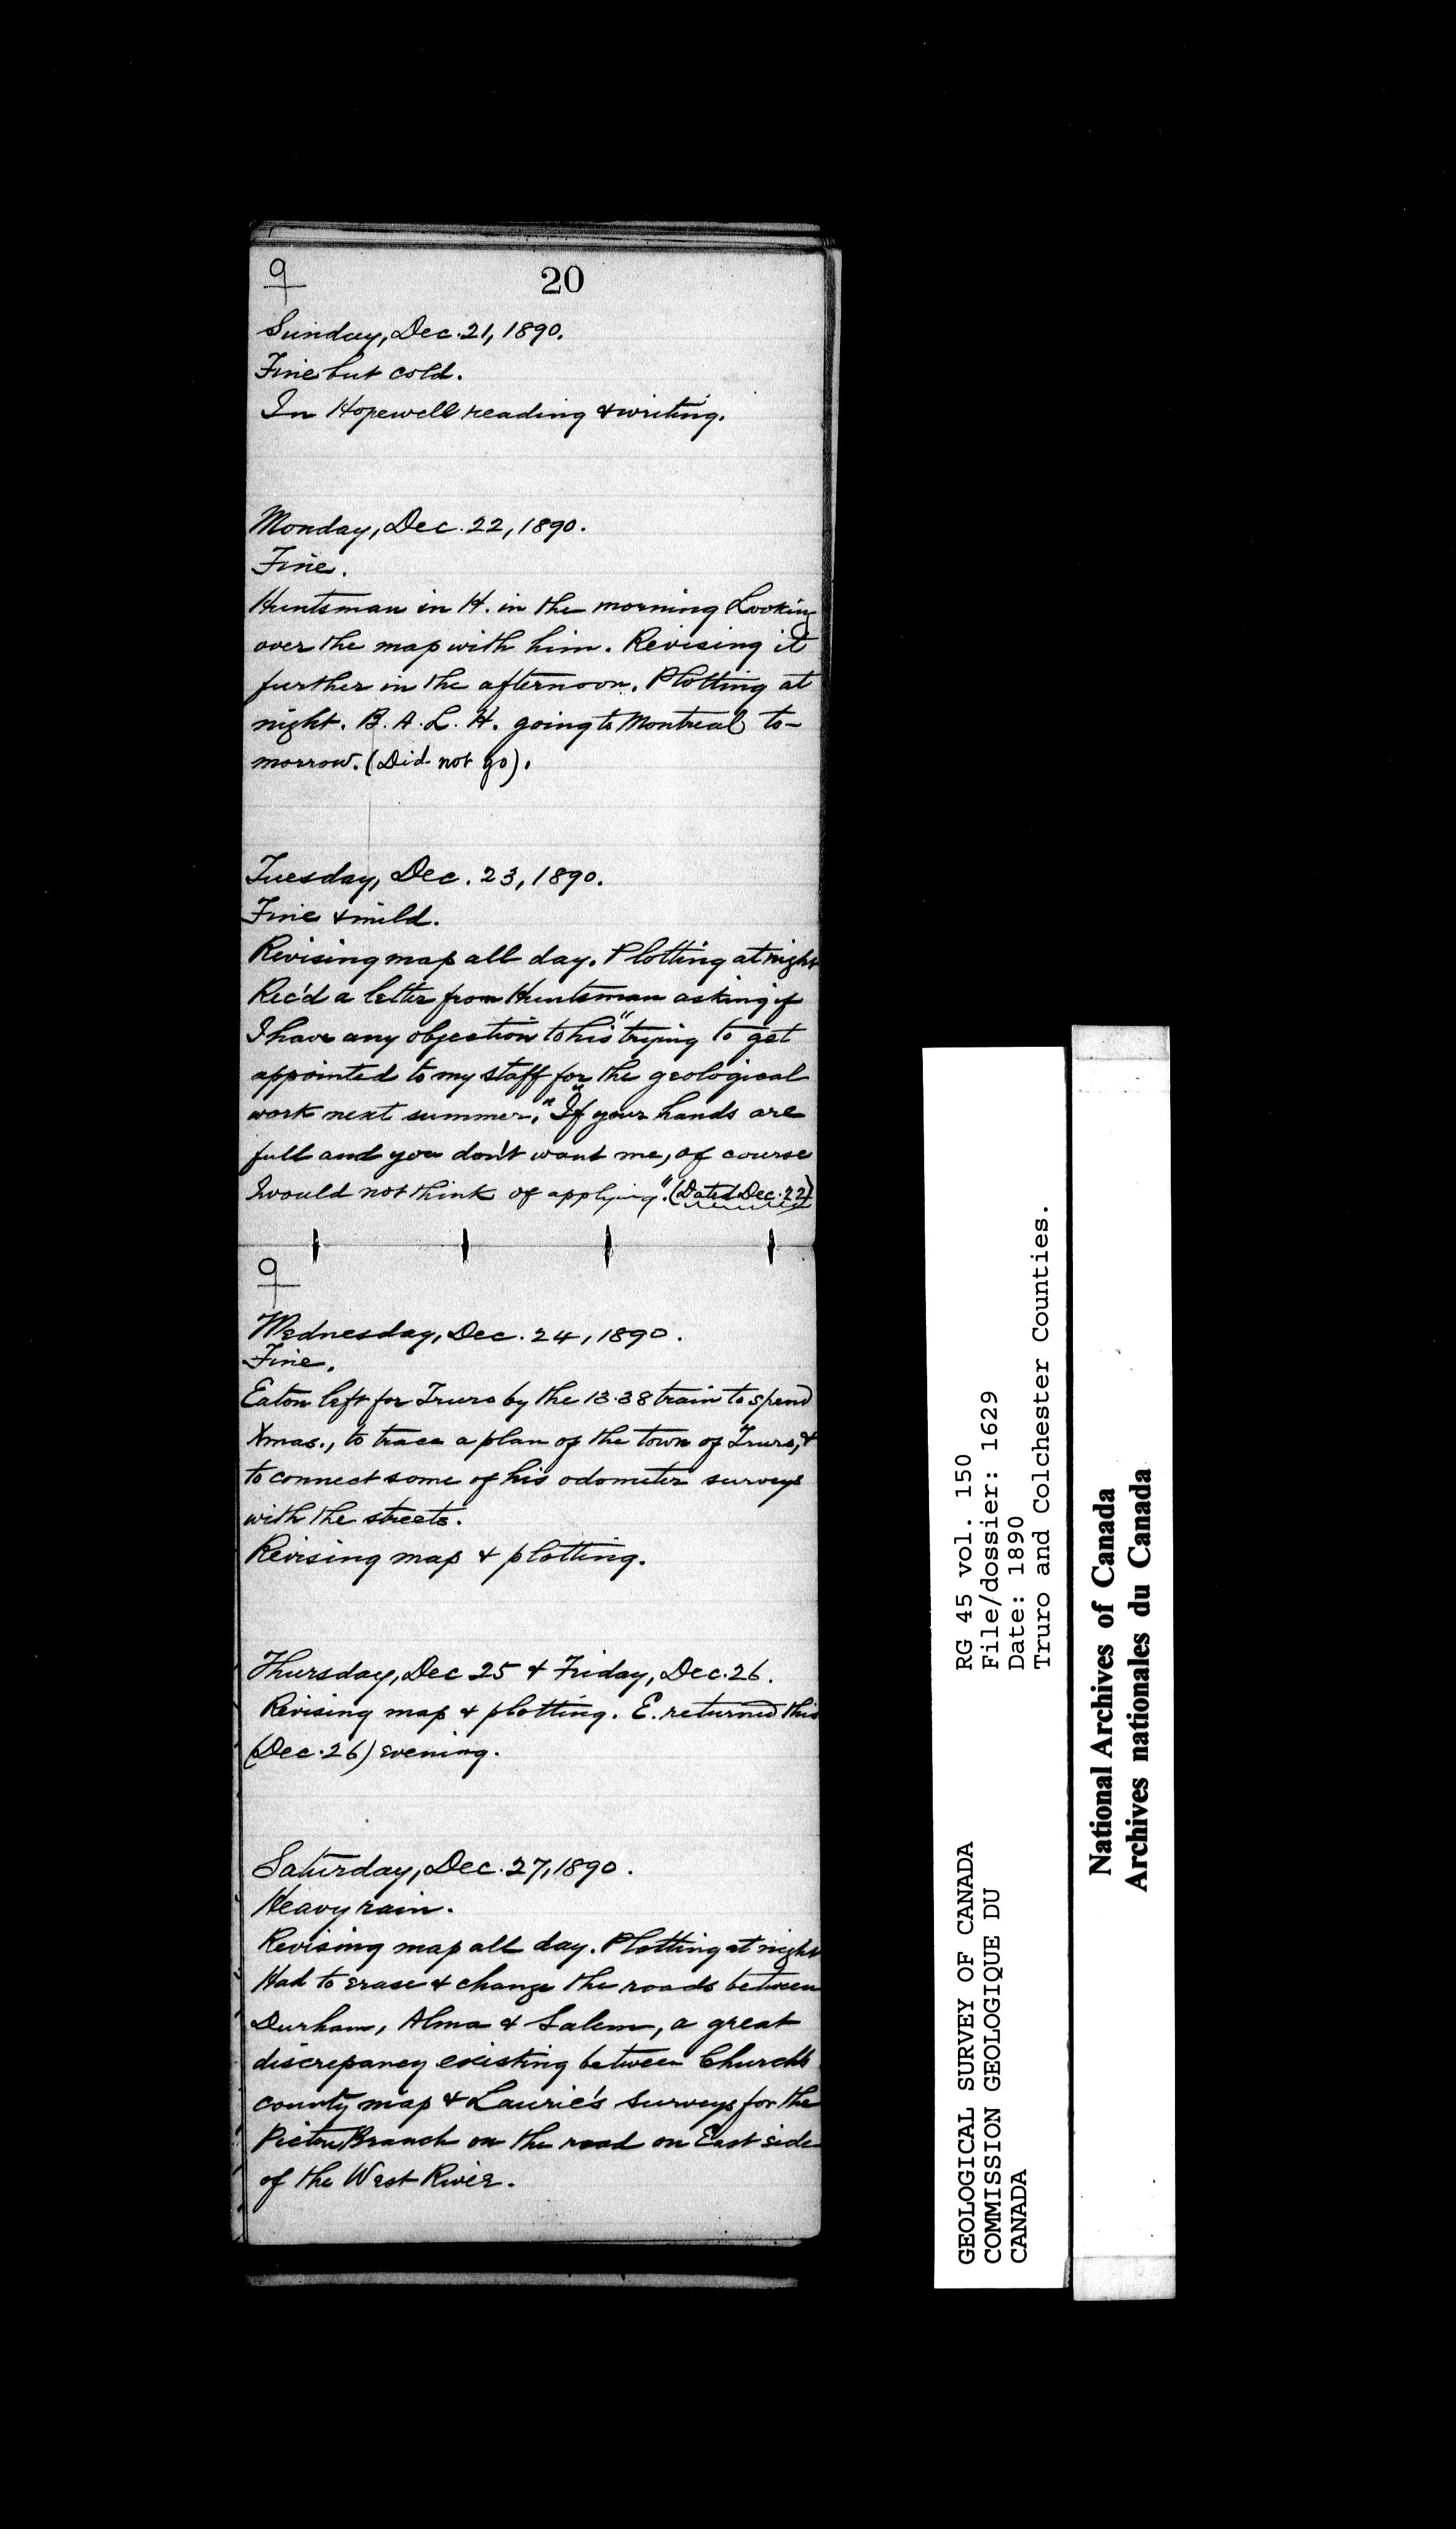 20
Sunday, Dec. 21, 1890.
Fine but cold.
In Hopewell reading & writing.
Monday, Dec. 22, 1890.
Fine.
Huntsman in H. in the morning Looking
over the map with him. Revising it
further in the afternoon. Plotting at
night. B. A. L. H. going to Montreal to-
morrow. (Did not go).
Tuesday, Dec. 23, 1890.
Fine & mild.
Revising map all day. Plotting at night
Rec'd a letter from Huntsman asking if
I have any objection to his "trying to get
appointed to my staff for the geological
work next summer," "If your hands are
full and you don't want me, of course
I would not think of applying". (Dated Dec. 22)
Wednesday, Dec. 24, 1890.
Fine.
Eaton left for Truro by the 13.38 train to spend
Xmas., to trace a plan of the town of Truro, &
to connect some of his odometer surveys
with the streets.
Revising map & plotting.
Thursday, Dec 25 & Friday, Dec. 26.
Revising map & plotting. E. returned this
(Dec. 26) evening.
Saturday, Dec. 27, 1890.
Heavy rain.
Revising map all day. Plotting at night
Had to erase & change the roads between
Durham, Alma & Salem, a great
discrepancy existing between Church's
county map & Laurie's surveys for the
Pictou Branch on the road on East side
of the West River.
GEOLOGICAL SURVEY OF CANADA
COMMISSION GEOLOGIQUE DU
CANADA
RG 45 vol. 150
File/dossier: 1629
Date: 1890
Truro and Colchester Counties.
National Archives of Canada
Archives nationales du Canada